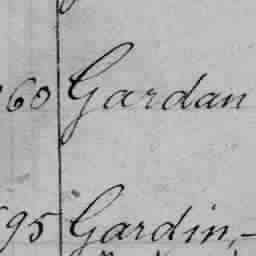 60 Gardan
95 Gardin,-